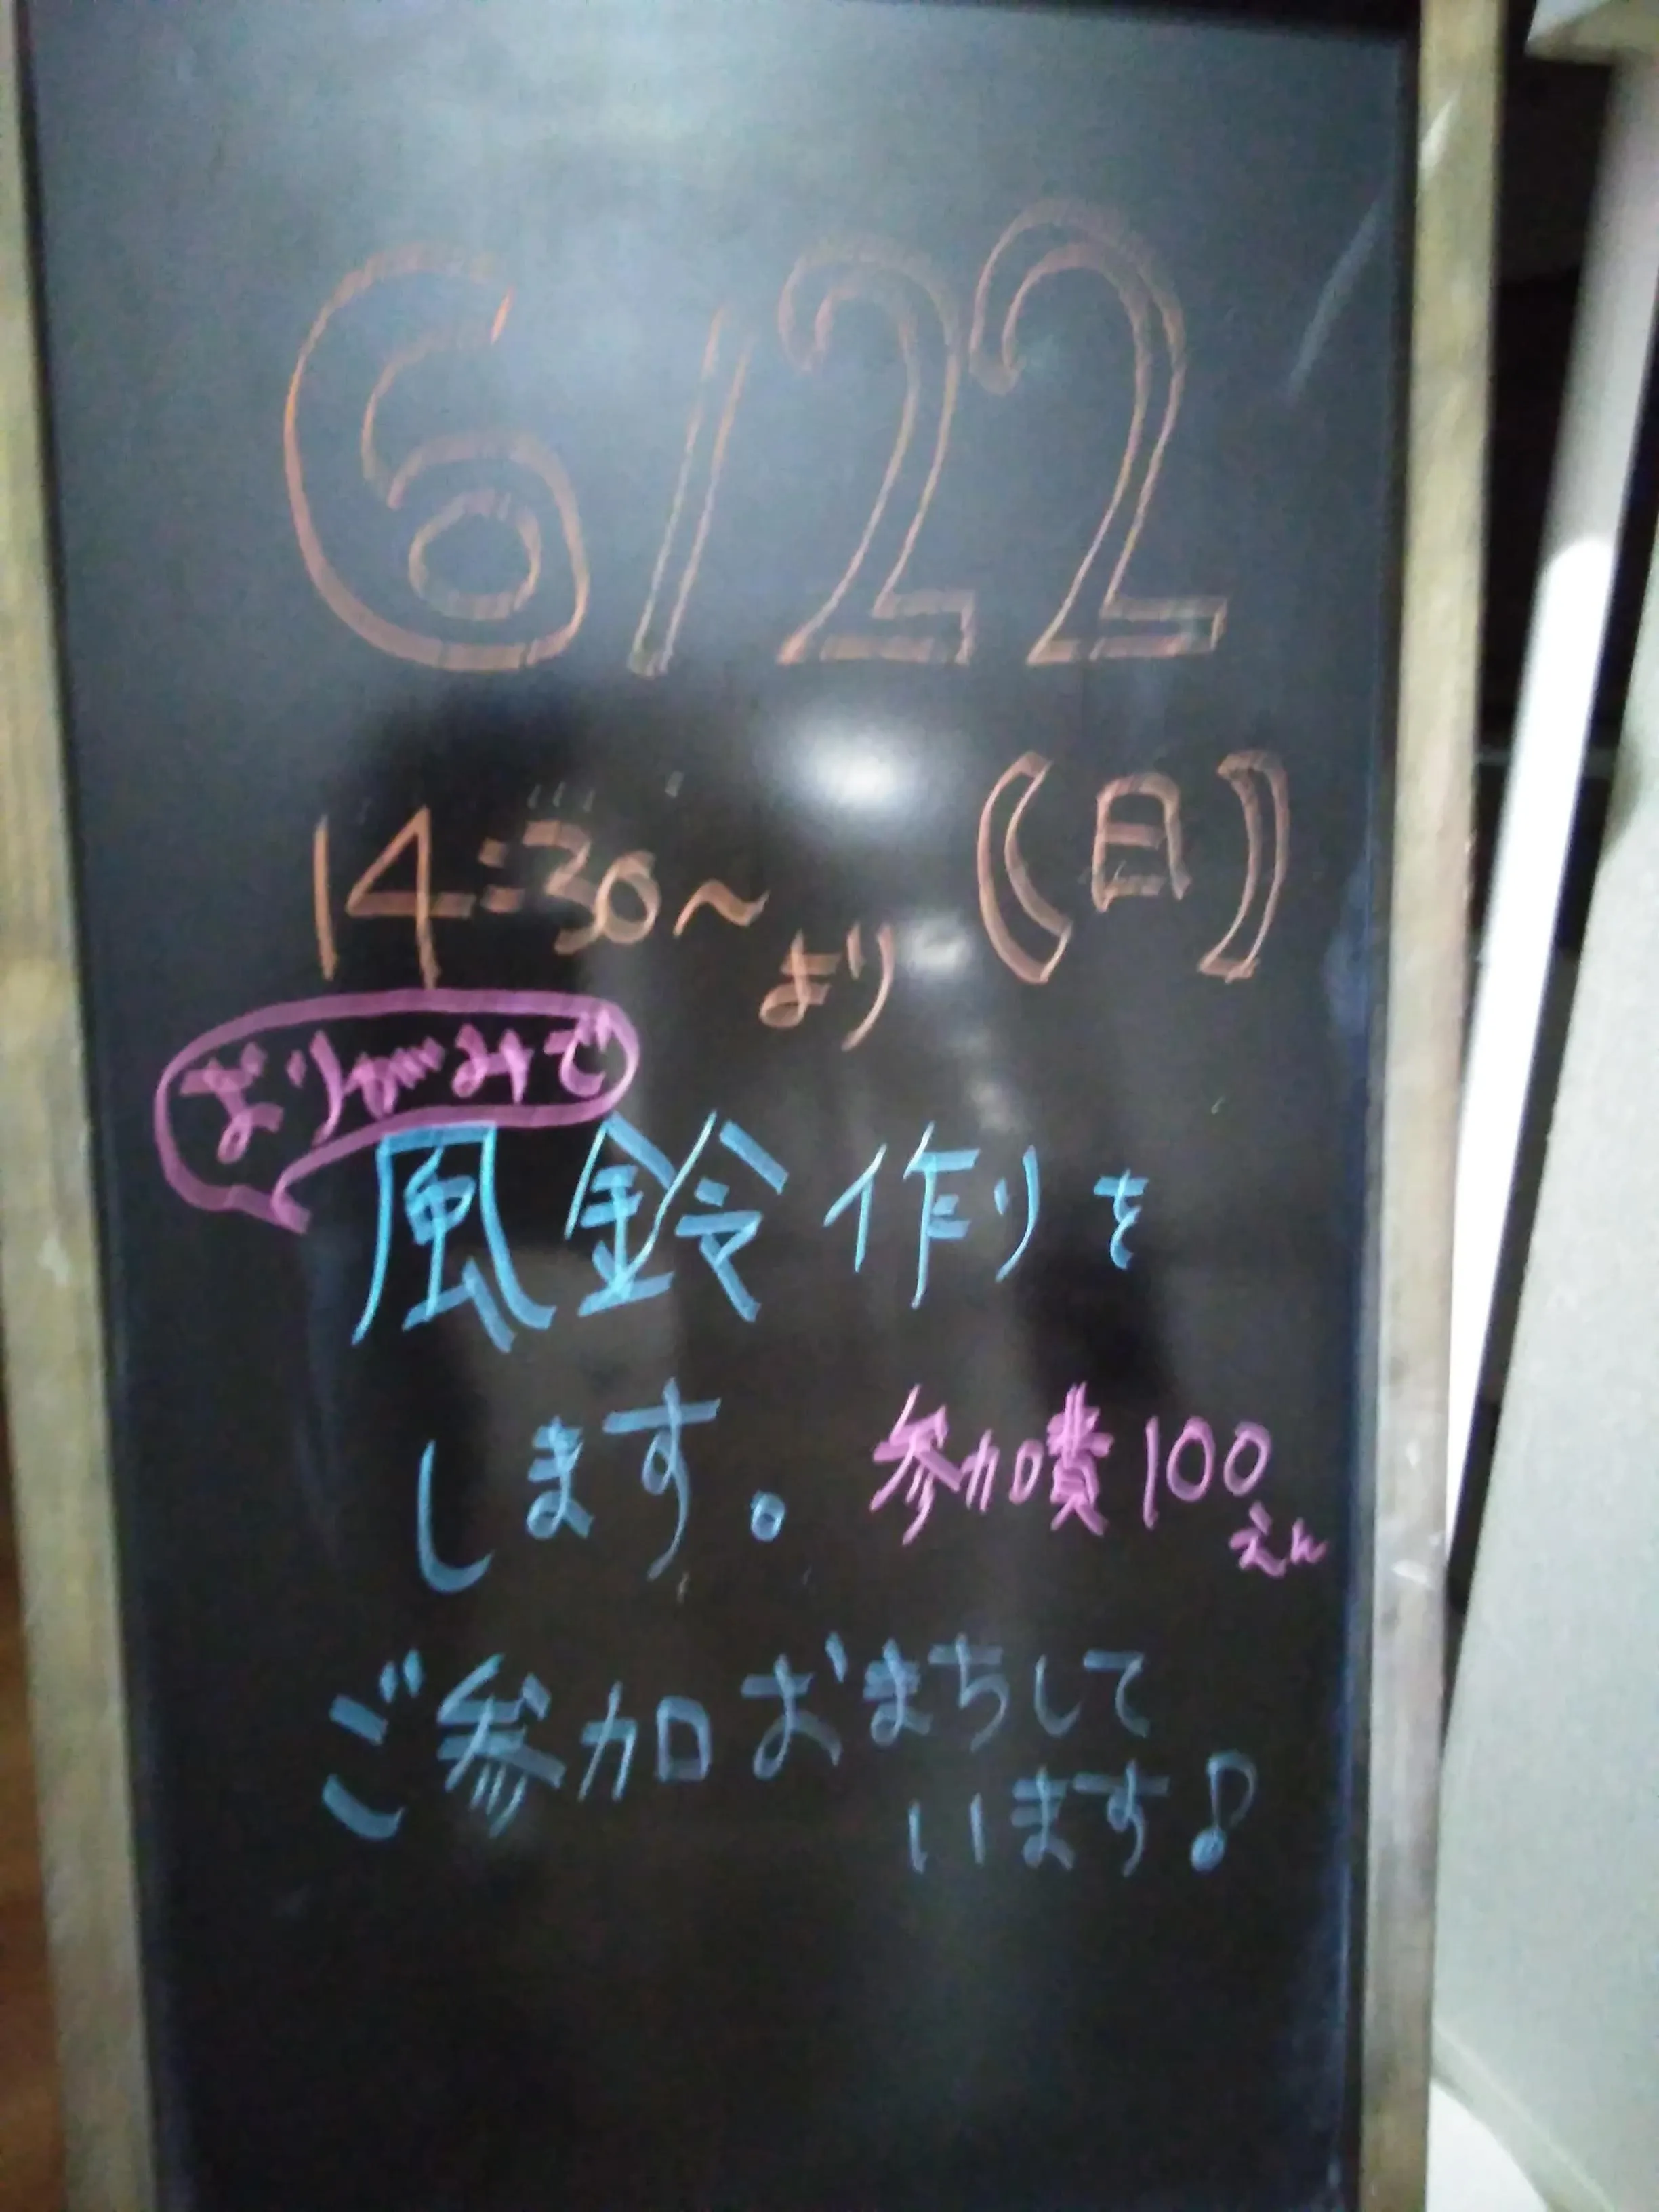 6/22
(日)
14:30～より
おりがみで
風鈴作りを
します。
参加費100えん
ご参加おまちして
います♪